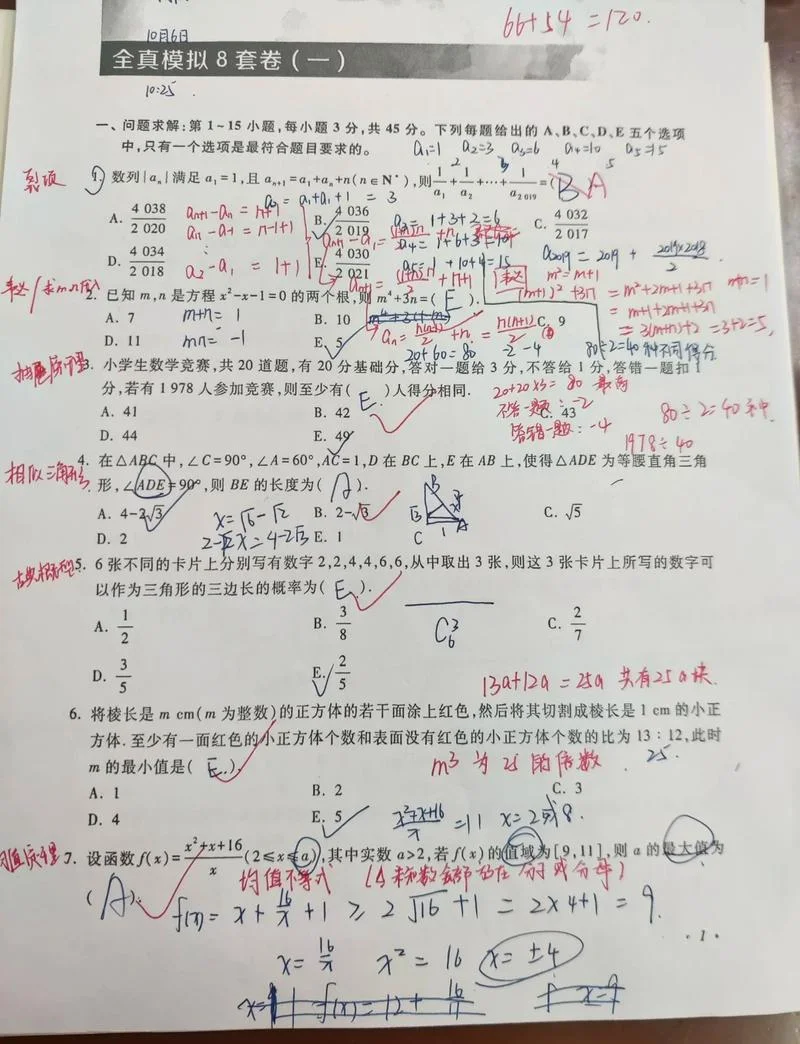 66+54=120.
10月6日
全真模拟8套卷(一)
10:25
一、问题求解:第1~15小题,每小题3分,共45分。下列每题给出的A、B、C、D、E五个选项
中,只有一个选项是最符合题目要求的。 a₁=1 a₂=3 a₃=6 a₄=10 a₅=15
裂项 1. 数列{aₙ}满足a₁=1,且aₙ₊₁=a₁+aₙ+n(n∈N*),则1/a₁+1/a₂+⋯+1/a₂₀₁₉=( B A
a₂=a₁+a₁+1=3
A. 4 038/2 020 B. 4 036/2 019 C. 4 032/2 017
aₙ₊₁-aₙ=n+1 a₃=1+3+2=6
aₙ-aₙ₋₁=n-1+1 a₄=1+6+3=10
D. 4 034/2 018 E. 4 030/2 021
a₂-a₁=1+1 a₅=1+10+4=15 a₂₀₁₉=2019+2019×2018/2
2. 已知m,n是方程x²-x-1=0的两个根,则m⁴+3n=( E ).
m²=m+1
(m+1)²+3n=m²+2m+1+3n m+n=1
=m+1+2m+1+3n
=3(m+n)+2=3+2=5,
A. 7 m+n=1 B. 10 C. 9
D. 11 mn=-1 E. 5
20+60=80 -2 -4 80÷2=40种不同得分
3. 小学生数学竞赛,共20道题,有20分基础分,答对一题给3分,不答给1分,答错一题扣1
分,若有1978人参加竞赛,则至少有( E )人得分相同.
20+20×3=80 最高
A. 41 B. 42 C. 43
不答一题:-2 80÷2=40种
D. 44 E. 49
答错一题:-4 1978÷40
相似三角形 4. 在△ABC中,∠C=90°,∠A=60°,AC=1,D在BC上,E在AB上,使得△ADE为等腰直角三角
形,∠ADE=90°,则BE的长度为( A ).
A. 4-2√3 B. 2-√3 C. √5
x=√6-√2
D. 2 E. 1
B √3 C 1 A
古典概型 5. 6张不同的卡片上分别写有数字2,2,4,4,6,6,从中取出3张,则这3张卡片上所写的数字可
以作为三角形的三边长的概率为( E ).
A. 1/2 B. 3/8 C. 2/7
C₆³
D. 3/5 E. 2/5
13a+12a=25a 共有25a块
6. 将棱长是m cm(m为整数)的正方体的若干面涂上红色,然后将其切割成棱长是1 cm的小正
方体.至少有一面红色的小正方体个数和表面没有红色的小正方体个数的比为13:12,此时
m的最小值是( E ). m³为25的倍数 25.
A. 1 B. 2 C. 3
D. 4 E. 5
x²+x+16/x=11 x=2或8.
7. 设函数f(x)=x²+x+16/x(2≤x≤a),其中实数a>2,若f(x)的值域为[9,11],则a的最大值为
均值不等式
( A ).
f(x)=x+16/x+1≥2√16+1=2×4+1=9.
·1·
x=16/x x²=16 x=±4